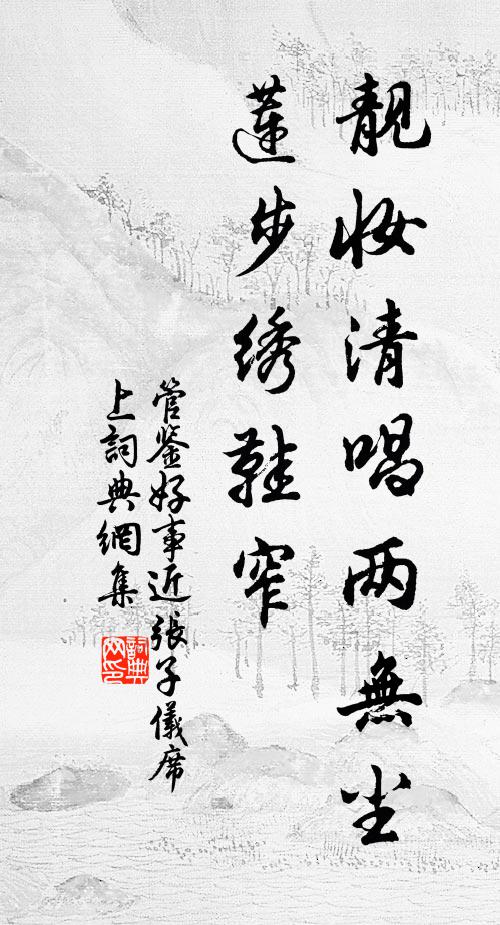 靓妆清唱两無尘
莲步绣鞋窄
管鉴好事近張子儀席
上詞典網集
詞典